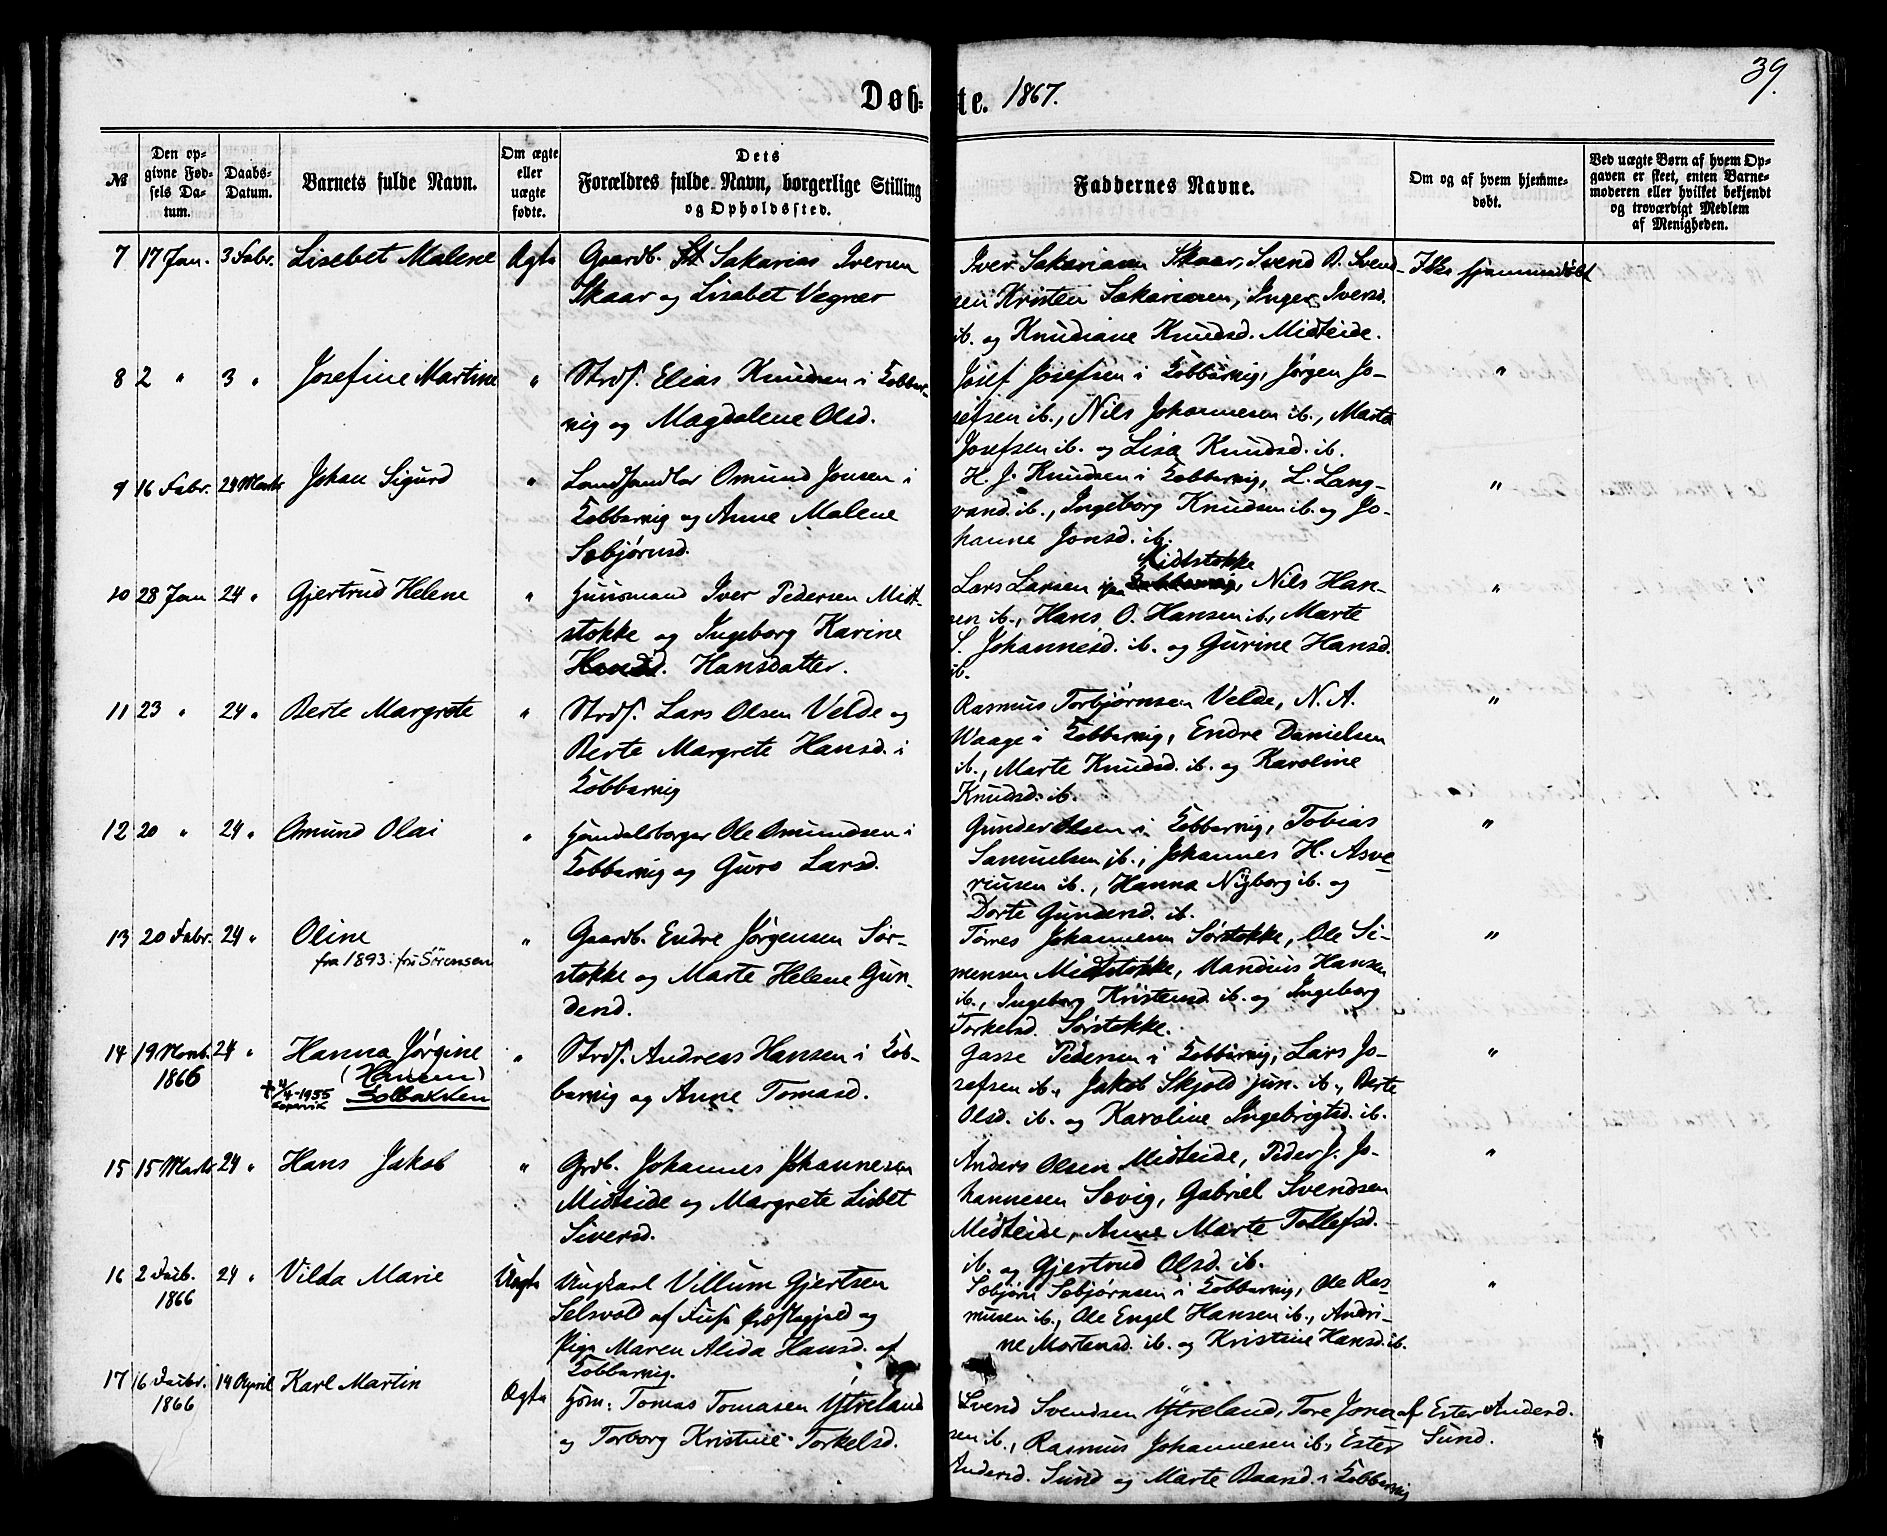 39.
Døb-te. 1867.
№
Den opgivne Fødsels Datum.
Daabs-Datum.
Barnets fulde Navn.
Om ægte eller uægte fødte.
Dets Forældres fulde Navn, borgerlige Stilling og Opholdssted.
Faddernes Navne.
Om og af hvem hjemmedøbt.
Ved uægte Børn af hvem Opgaven er skeet, enten Barnemoderen eller hvilket bekjendt og troværdigt Medlem af Menigheden.
7 17 Jan. 3 Febr. Lisebet Malene Ægte
Gaardb. Sakarias Iversen
Skaar og Lisabet Vegner
Iver Sakariasen Skaar, Svend B. Svend-
sen Kristen Sakariasen, Inger Iversd.
ib. og Knudiane Knudsd. Midteide.
Ikke hjemmedøbt
8 2 " 3 " Josefine Martine "
Strds. Elias Knudsen i Kobber-
vig og Magdalene Olsd.
Josef Josefsen i Kobbervig, Jørgen Jo-
sefsen ib., Nils Johannesen ib., Marta
Josefsen ib. og Lisa Knudsd. ib.
"
9 16 Febr. 24 Marts Johan Sigurd "
Landhandler Omund Jonsen i
Kobbervig og Anne Malene
Sæbjørnsd.
H. J. Knudsen i Kobbervig, L. Lang-
vand. ib., Ingeborg Knudsen ib. og Jo-
hanne Jonsd. ib.
"
10 28 Jan 24 " Gjertrud Helene "
Huusmand Iver Pedersen Midt-
stokke og Ingeborg Karine
Hansdatter.
Midtstokke
Lars Larsen Kobbervig, Nils Han-
sen ib., Hans O. Hansen ib., Marte
S. Johannesd. ib. og Gurine Hansd.
ib.
"
11 23 " 24 " Berte Margrete "
Strds. Lars Olsen Velde og
Berte Margrete Hansd. i
Kobbervig
Rasmus Torbjørnsen Velde, N. A.
Waage i Kobbervig, Endre Danielsen
ib., Marte Knudsd. ib. og Karoline
Knudsd. ib.
"
12 20 " 24 " Omund Olai "
Handelsborger Ole Omundsen i
Kobbervig og Guro Larsd.
Gunder Olsen i Kobbervig, Tobias
Samuelsen ib., Johannes H. Asve-
riusen ib., Hanna Nyborg ib. og
Dorte Gundersd. ib.
"
13 20 Febr. 24 " Oline "
fra 1893: fru Sörensen
Gaardb. Endre Jørgensen Sør-
stokke og Marte Helene Gun-
dersd.
Tørres Johannesen Sørstokke, Ole Si-
mensen Midtstokke, Mandius Hansen
ib., Ingeborg Kristensd. ib. og Ingeborg
Torkelsd. Sørstokke.
"
14 19 Novb. 24 " Hanna Jørgine "
1866 (Hansen)
+ 4/4-1955 Solbakken
Kopervik
Strds. Andreas Hansen i Kob-
bervig og Anne Tomasd.
Gasse Pedersen i Kobbervig, Lars Jo-
sefsen ib., Jakob Skjold jun. ib., Berte
Olsd. ib. og Karoline Ingebrigtsd. ib.
"
15 15 Marts 24 " Hans Jakob "
Grdb. Johannes Johannesen
Midteide og Margrete Lisbet
Siversd.
Anders Olsen Midteide, Peder J. Jo-
hannesen Sævig, Gabriel Svendsen
Midteide, Anne Marte Tollefsd.
ib. og Gjertrud Olsd. ib.
"
16 2 24 " Vilda Marie Uægte
1866
Ungkarl Villum Gjertsen
Selsvold af Fuse Præstegjeld og
Pige Maren Alida Hansd. af
Kobbervig.
Sæbjørn Sæbjørnsen i Kobbervig, Ole Ras-
musen ib., Ole Engel Hansen ib., Andri-
ne Mortensd. ib. og Kristine Hansd. ib.
"
17 16 14 April Karl Martin Ægte
1866
Hsm. Tomas Tomasen Ytreland
og Torborg Kristine Torkelsd.
Svend Svendsen Ytreland, Tore Jonas-
sen ib., Rasmus Johannesen ib., Ester
Andersd. Sund og Marte Baarsd. i Kobbervig
af Ester Andersd.
Sund.